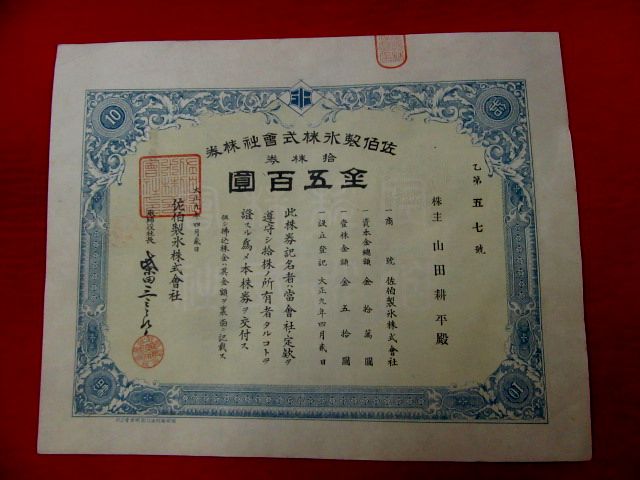 佐伯製氷株式會社株券
拾株券
金五百圓
乙第五七號
株主 山田耕平殿
一商號 佐伯製氷株式會社
一資本金總額 金拾萬圓
一壹株金額 金五拾圓
一設立登記 大正九年四月貳日
此株券記名者ハ當會社ノ定款ヲ
遵守シ拾株ノ所有者タルコトヲ
證スル爲メ本株券ヲ交付ス
但シ拂込株金ハ其金額ヲ裏面ニ記載ス
大正九年四月貳日
佐伯製氷株式會社
取締役社長
10
拾
拾
10